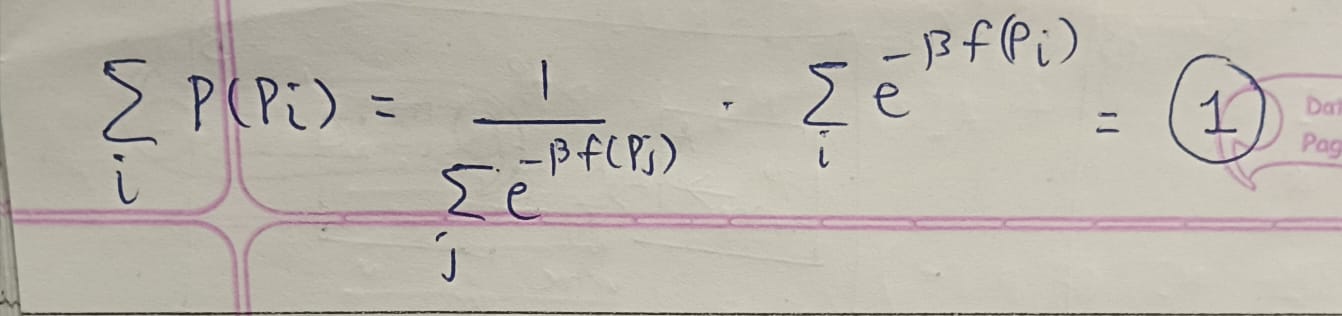 ∑_i P(P_i) = 1 / (∑_j e^{-βf(P_j)}) · ∑_i e^{-βf(P_i)} = 1
Dat
Pag